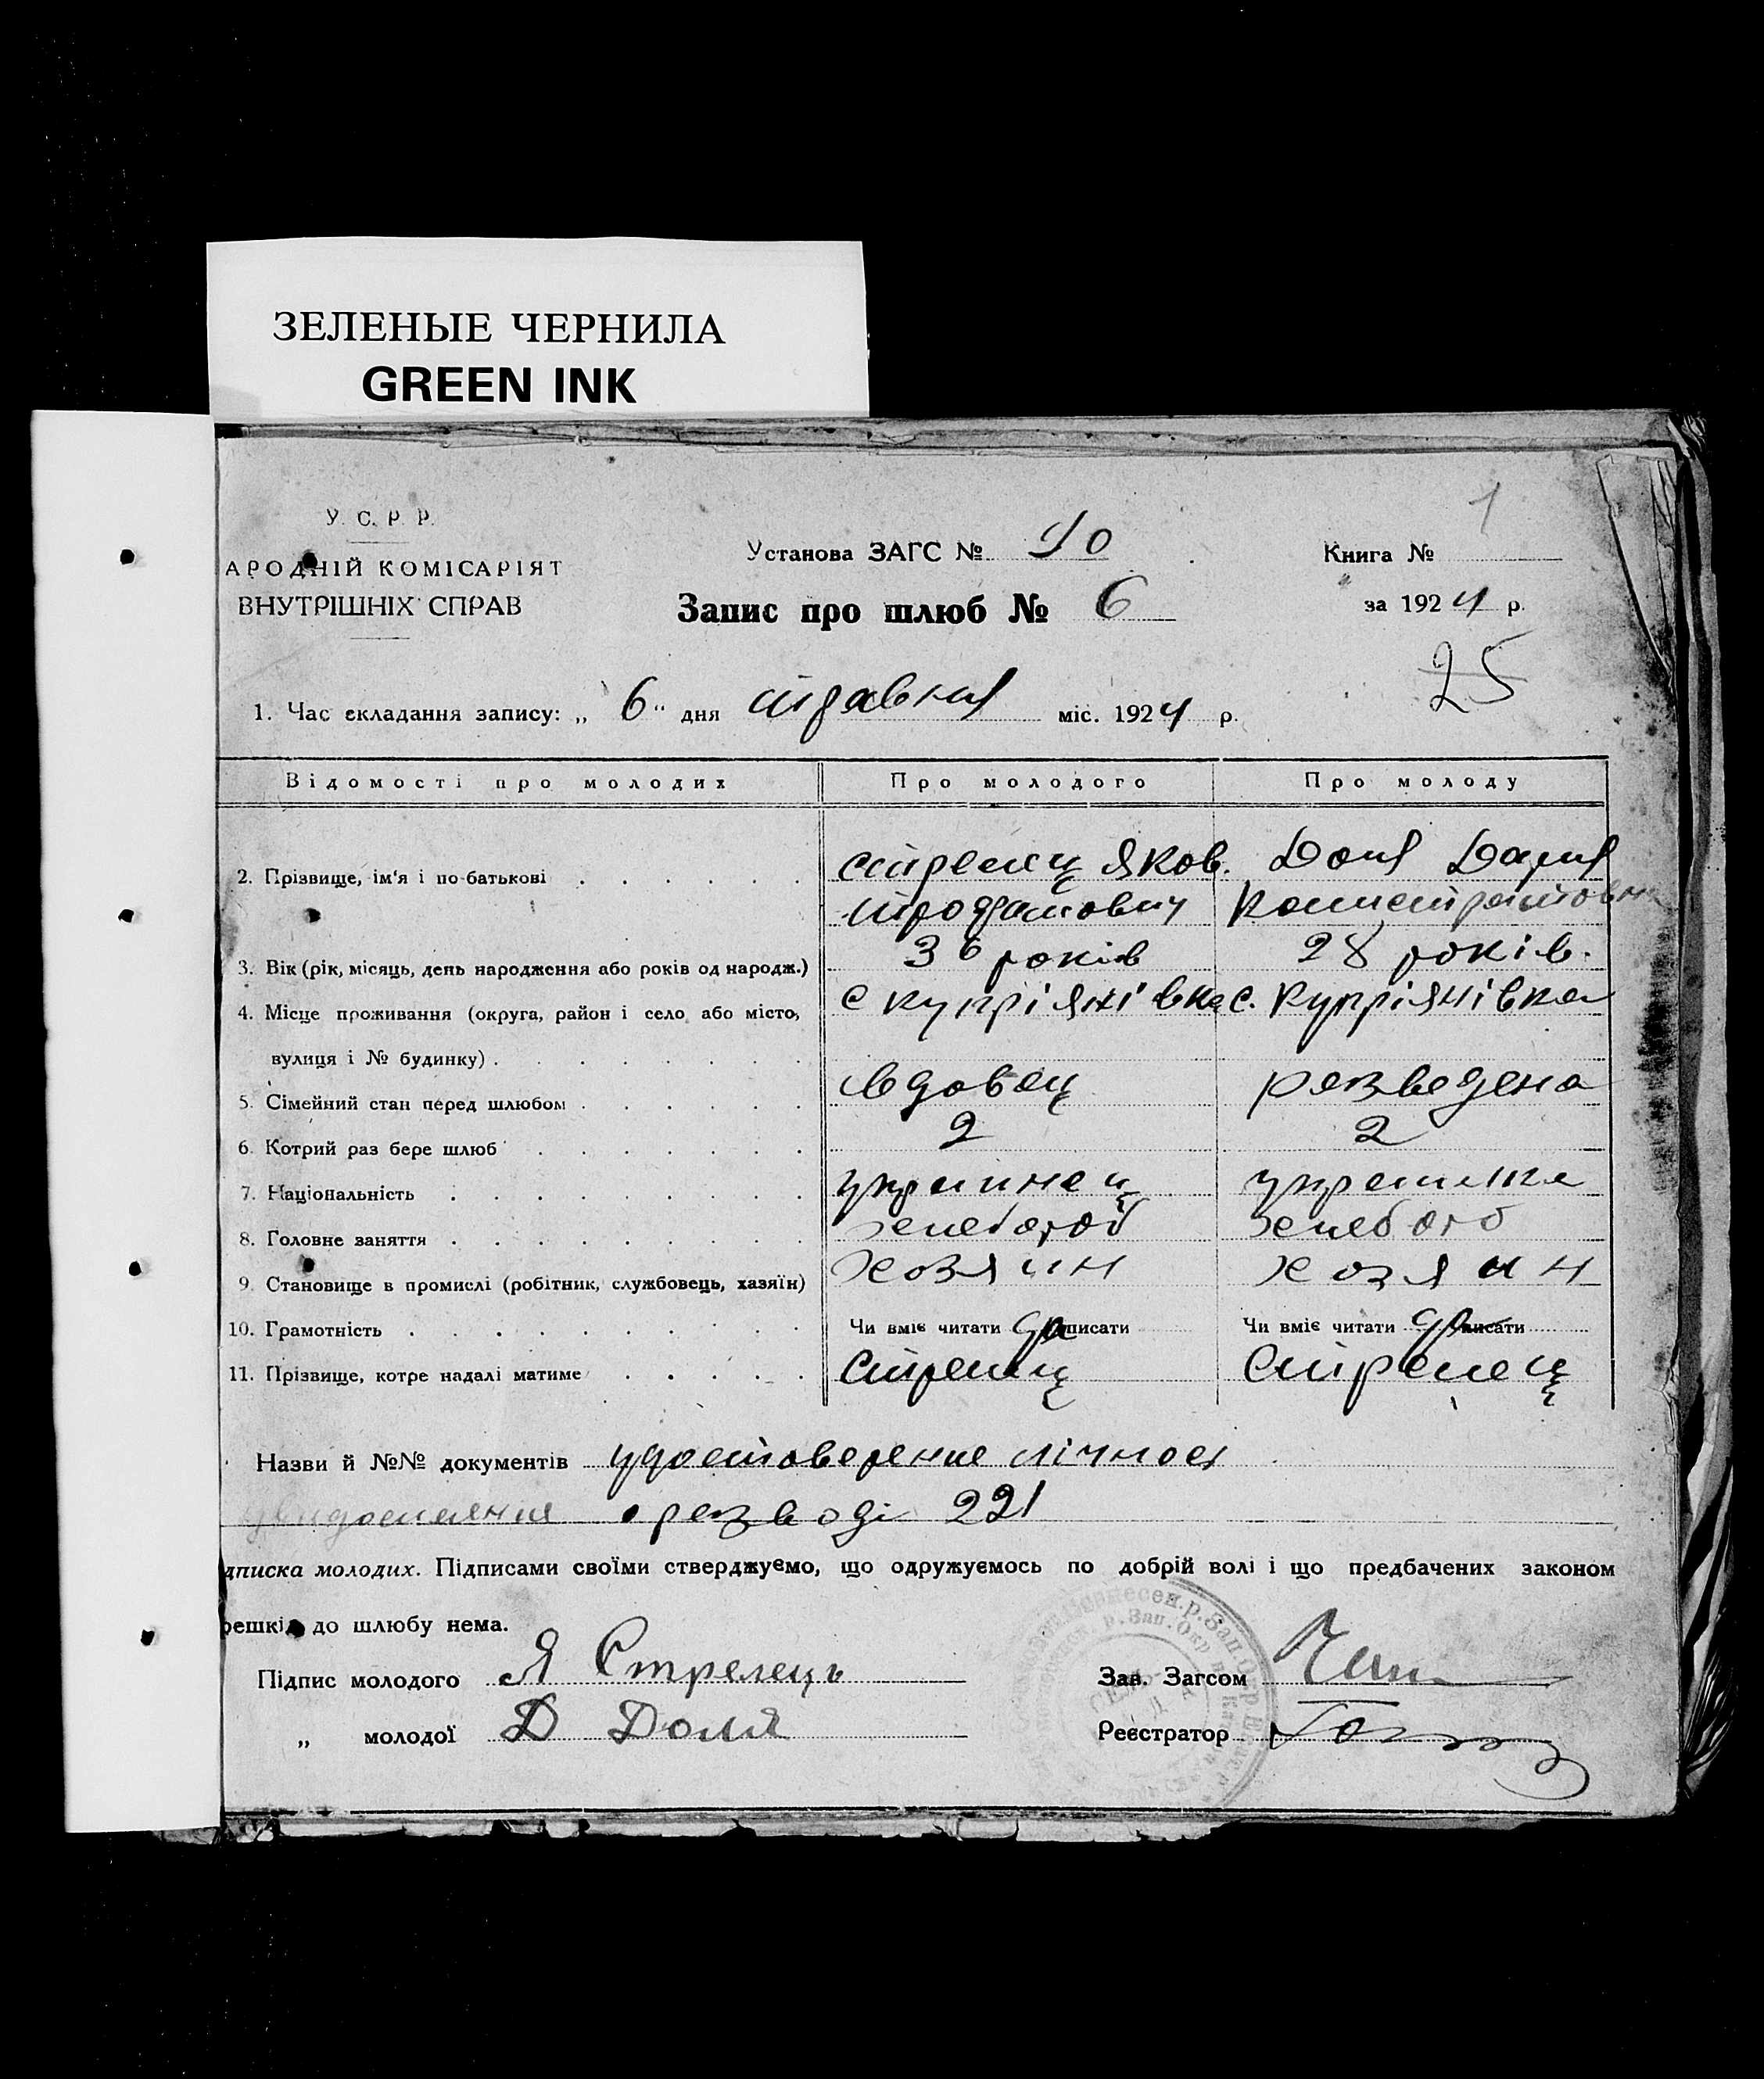 ЗЕЛЕНЫЕ ЧЕРНИЛА
GREEN INK
1
У. С. Р. Р.
АРОДНІЙ КОМІСАРІЯТ
ВНУТРІШНІХ СПРАВ
Установа ЗАГС № 10
Книга №
Запис про шлюб № 6
за 1924 р.
25
1. Час складання запису: „ 6 “ дня травня міс. 1924 р.
Відомості про молодих Про молодого Про молоду
2. Прізвище, ім'я і по-батькові Стрелец Яков. Доля Дарья
3. Вік (рік, місяць, день народження або років од народж.) 36 років 28 років.
4. Місце проживання (округа, район і село або місто, с купріянівка с. Купріянівка
вулиця і № будинку)
5. Сімейний стан перед шлюбом вдовец розведена
6. Котрий раз бере шлюб 2 2
7. Національність украинец украинка
8. Головне заняття хлебороб хлебороб
9. Становище в промислі (робітник, службовець, хазяїн) хозяин хозяин
10. Грамотність Чи вміє читати да писати Чи вміє читати да писати
11. Прізвище, котре надалі матиме Стрелец Стрелец
Назви й №№ документів удостоверение лічност
о розводі 221
дписка молодих. Підписами своїми стверджуємо, що одружуємось по добрій волі і що предбачених законом
решкід до шлюбу нема.
Підпис молодого Я Стрелець
Зав. Загсом
„ молодої Д Доля
Реєстратор